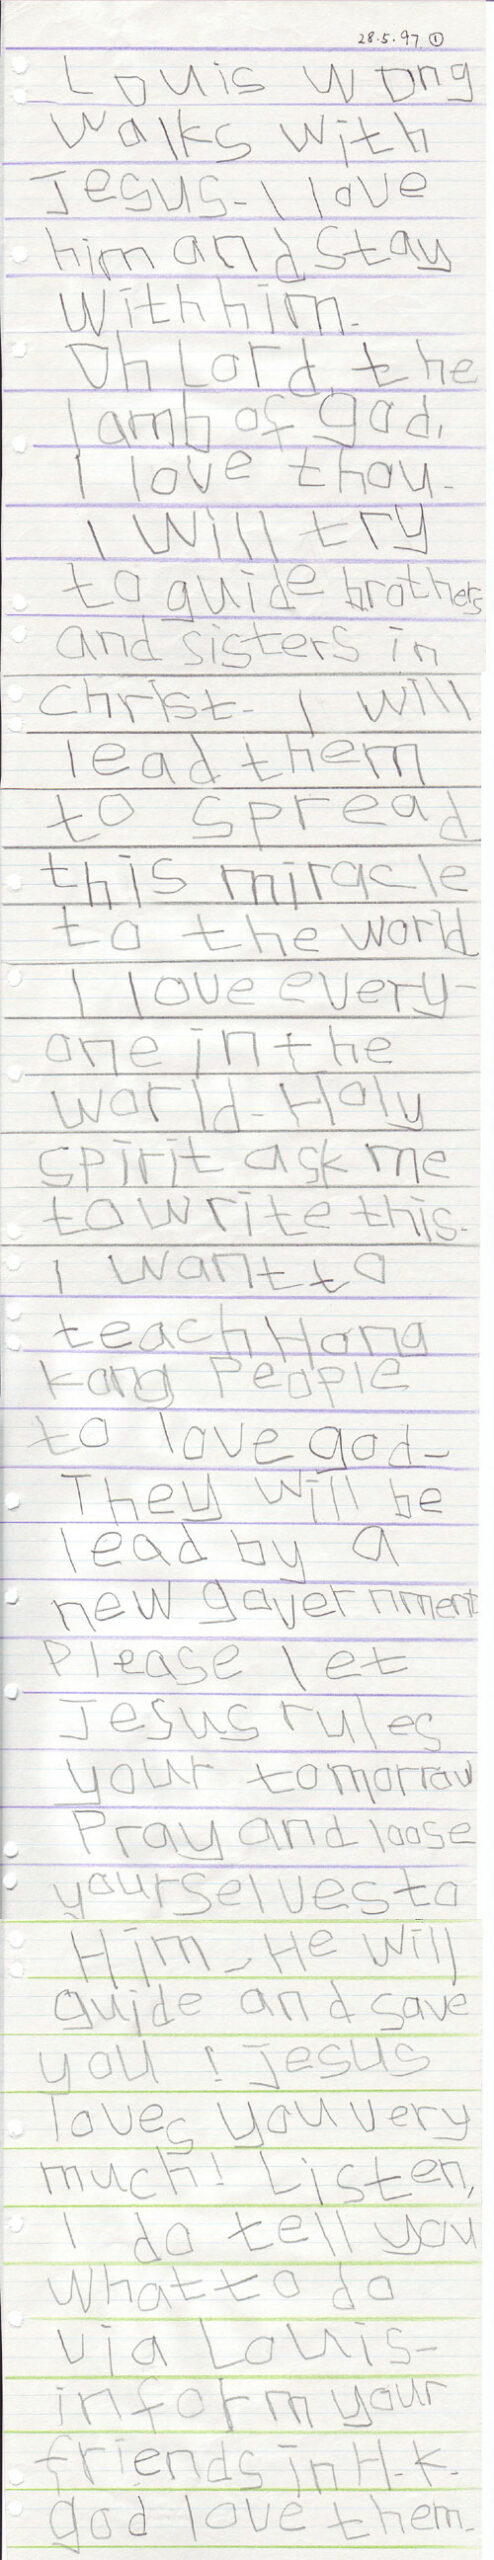 28.5.97 ①
Louis Wong
walks with
Jesus. I love
him and stay
with him.
Oh Lord, the
lamb of god,
I love thou.
I will try
to guide brothers
and sisters in
Christ. I will
lead them
to spread
this miracle
to the world
I love every-
one in the
world. Holy
spirit ask me
to write this.
I want to
teach Hong
Kong People
to love god.
They will be
lead by a
new government
Please let
Jesus rules
your tomorrow
Pray and loose
yourselves to
Him. He will
guide and save
you! Jesus
loves you very
much! Listen,
I do tell you
what to do
via Louis.
inform your
friends in H.K.
god love them.